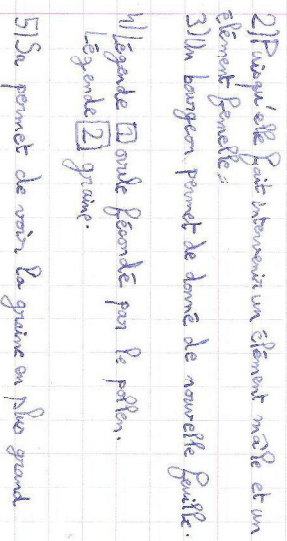 2) Puisqu'elle fait intervenir un élément mâle et un
élément femelle.
3) Un bourgeon permet de donné de nouvelle feuille.
4) Légende 1 ovule fécondé par le pollen.
Légende 2 graine.
5) Sa permet de voir la graine en plus grand